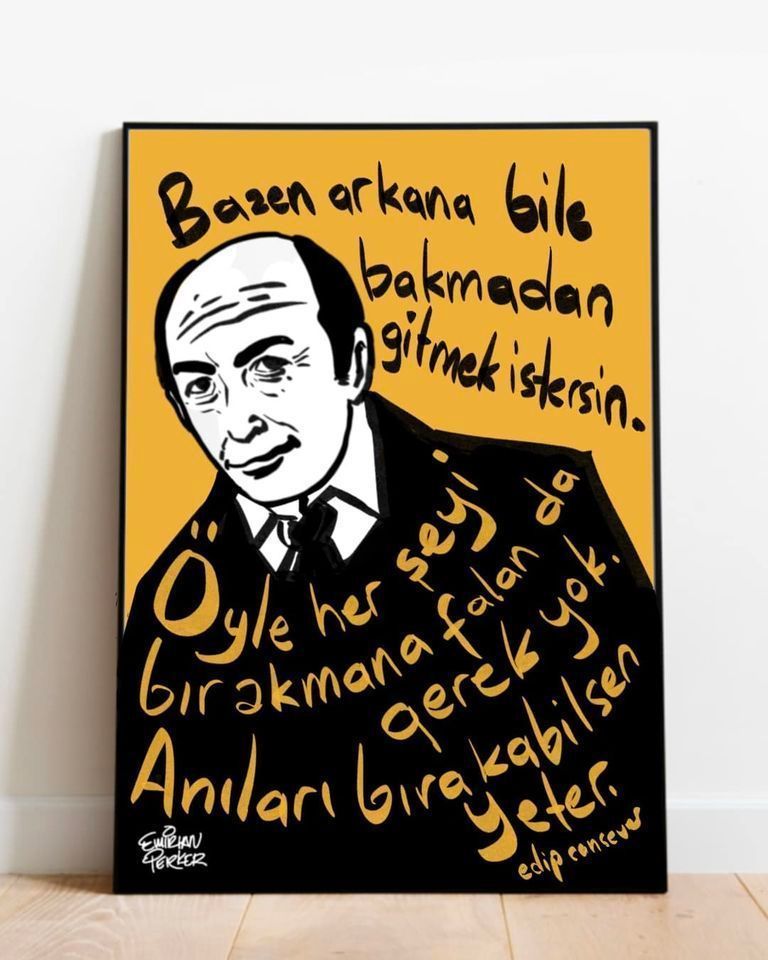 Bazen arkana bile
bakmadan
gitmek istersin.
Öyle her şeyi
bırakmana falan da
gerek yok.
Anıları bırakabilsen
yeter.
edip cansever
EMİRHAN
PERKER